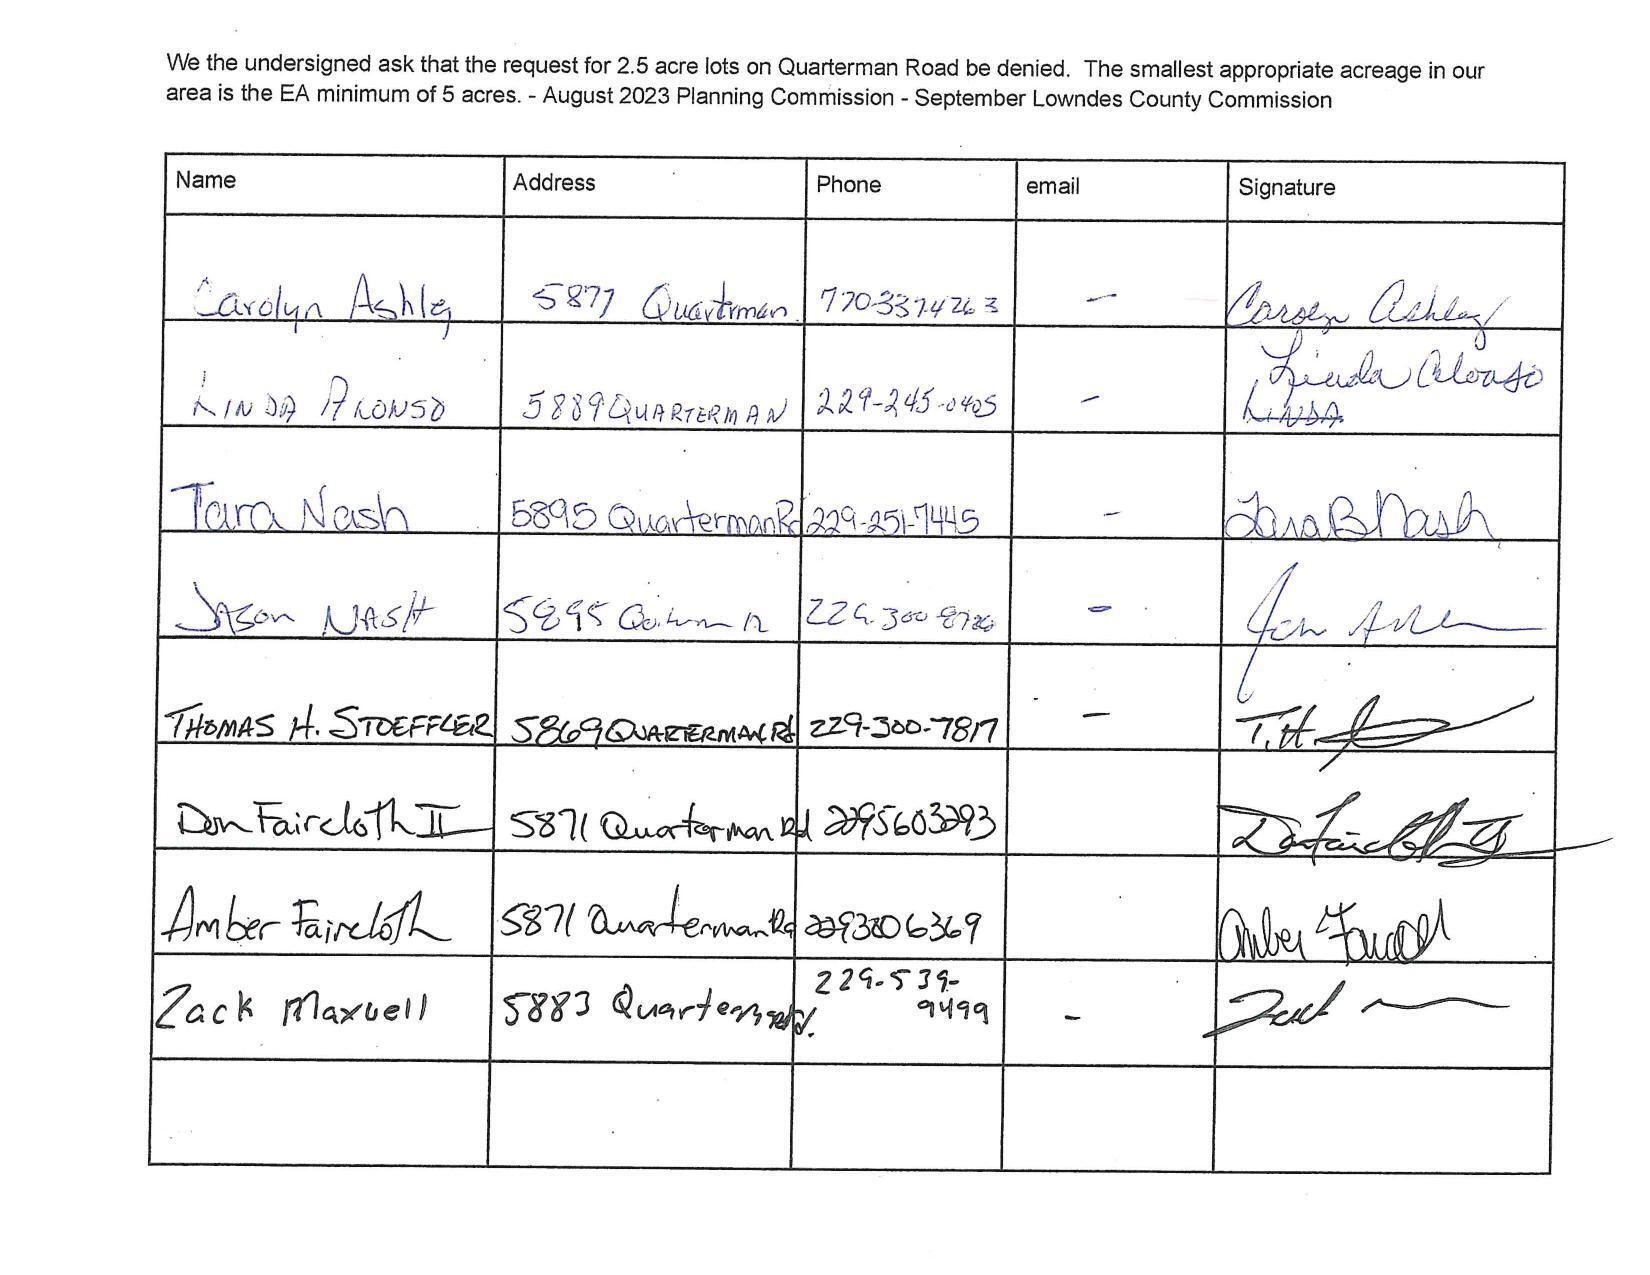 We the undersigned ask that the request for 2.5 acre lots on Quarterman Road be denied. The smallest appropriate acreage in our
area is the EA minimum of 5 acres. - August 2023 Planning Commission - September Lowndes County Commission
Name Address Phone email Signature
Carolyn Ashley 5877 Quarterman 770-337-4263 - Carolyn Ashley
Linda Alonso
LINDA ALONSO 5889 QUARTERMAN 229-245-0405 - LINDA
Tara Nash 5895 Quarterman Rd 229-251-7445 - Tara B Nash
Jason NASH 5895 229-300- -
THOMAS H. STOEFFLER 5869 QUARTERMAN Rd 229-300-7817 - T.H.
Don Faircloth II 5871 Quarterman Rd 2295603293 Don Faircloth II
Amber Faircloth 5871 Quarterman Rd 2293006369 Amber Faircloth
229-539-
Zack Maxwell 5883 Quarterman Rd. 9499 - Zack